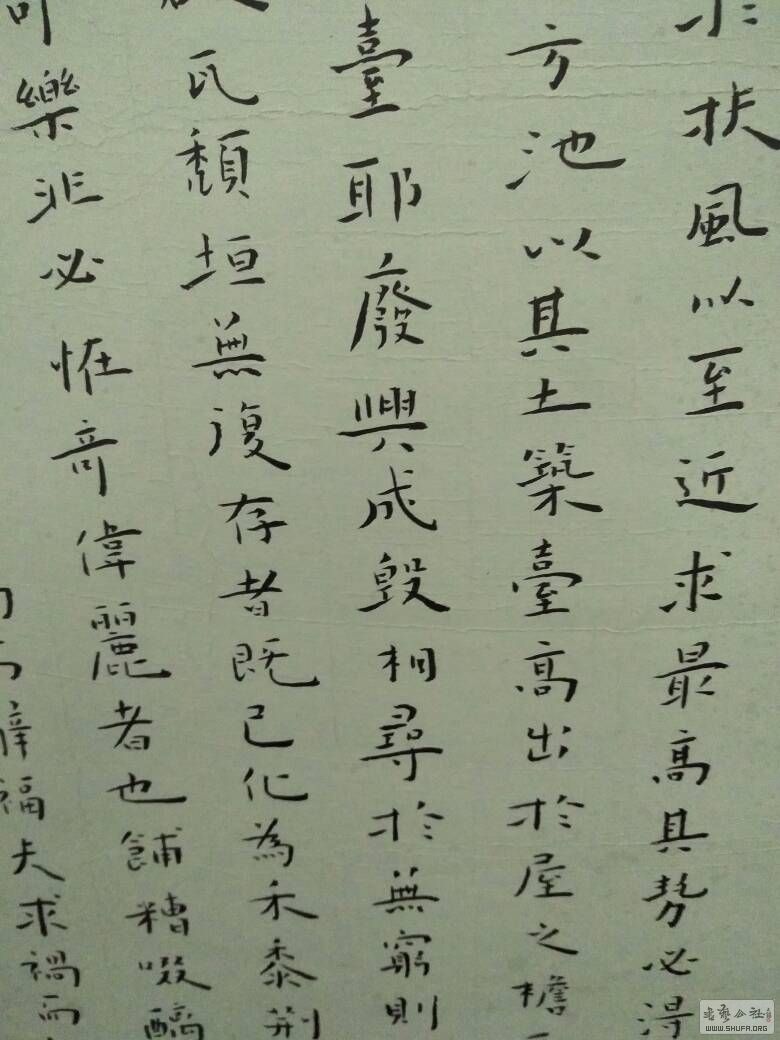 於扶風以至近求最高其勢必得
方池以其土築臺高出於屋之檐
臺耶廢興成毀相尋於無窮則
瓦頹垣無復存者既已化為禾黍荊
可樂非必怪奇偉麗者也餔糟啜醨
福夫求禍而
WWW.SHUFA.ORG